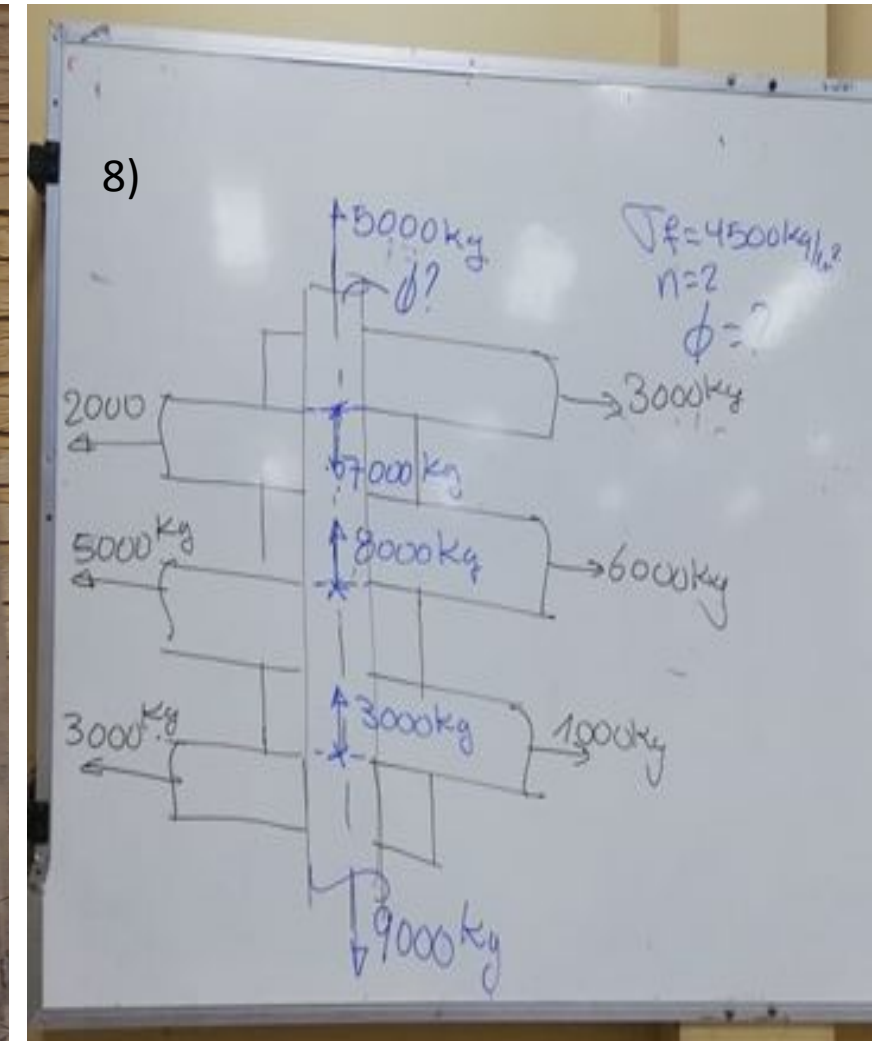 8)
5000kg
φ?
σf=4500kg/cm²
n=2
φ=?
2000
3000kg
7000kg
5000kg
8000kg
6000kg
3000kg
3000kg
1000kg
9000kg